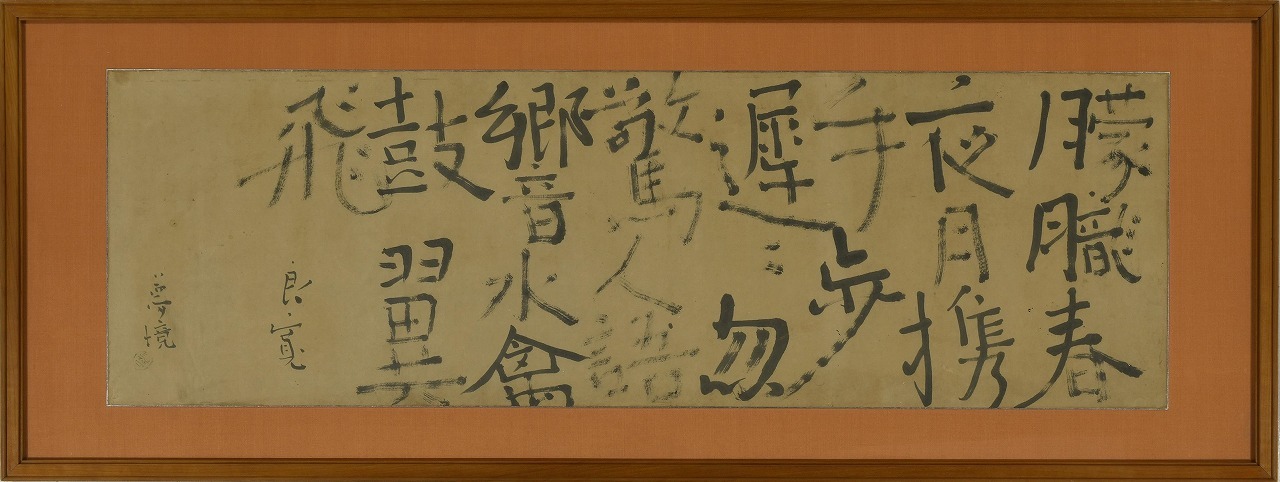 朦朧春
夜月携
手歩
遲々忽
驚人語
響水禽
鼓翼
飛
良寛
夢境